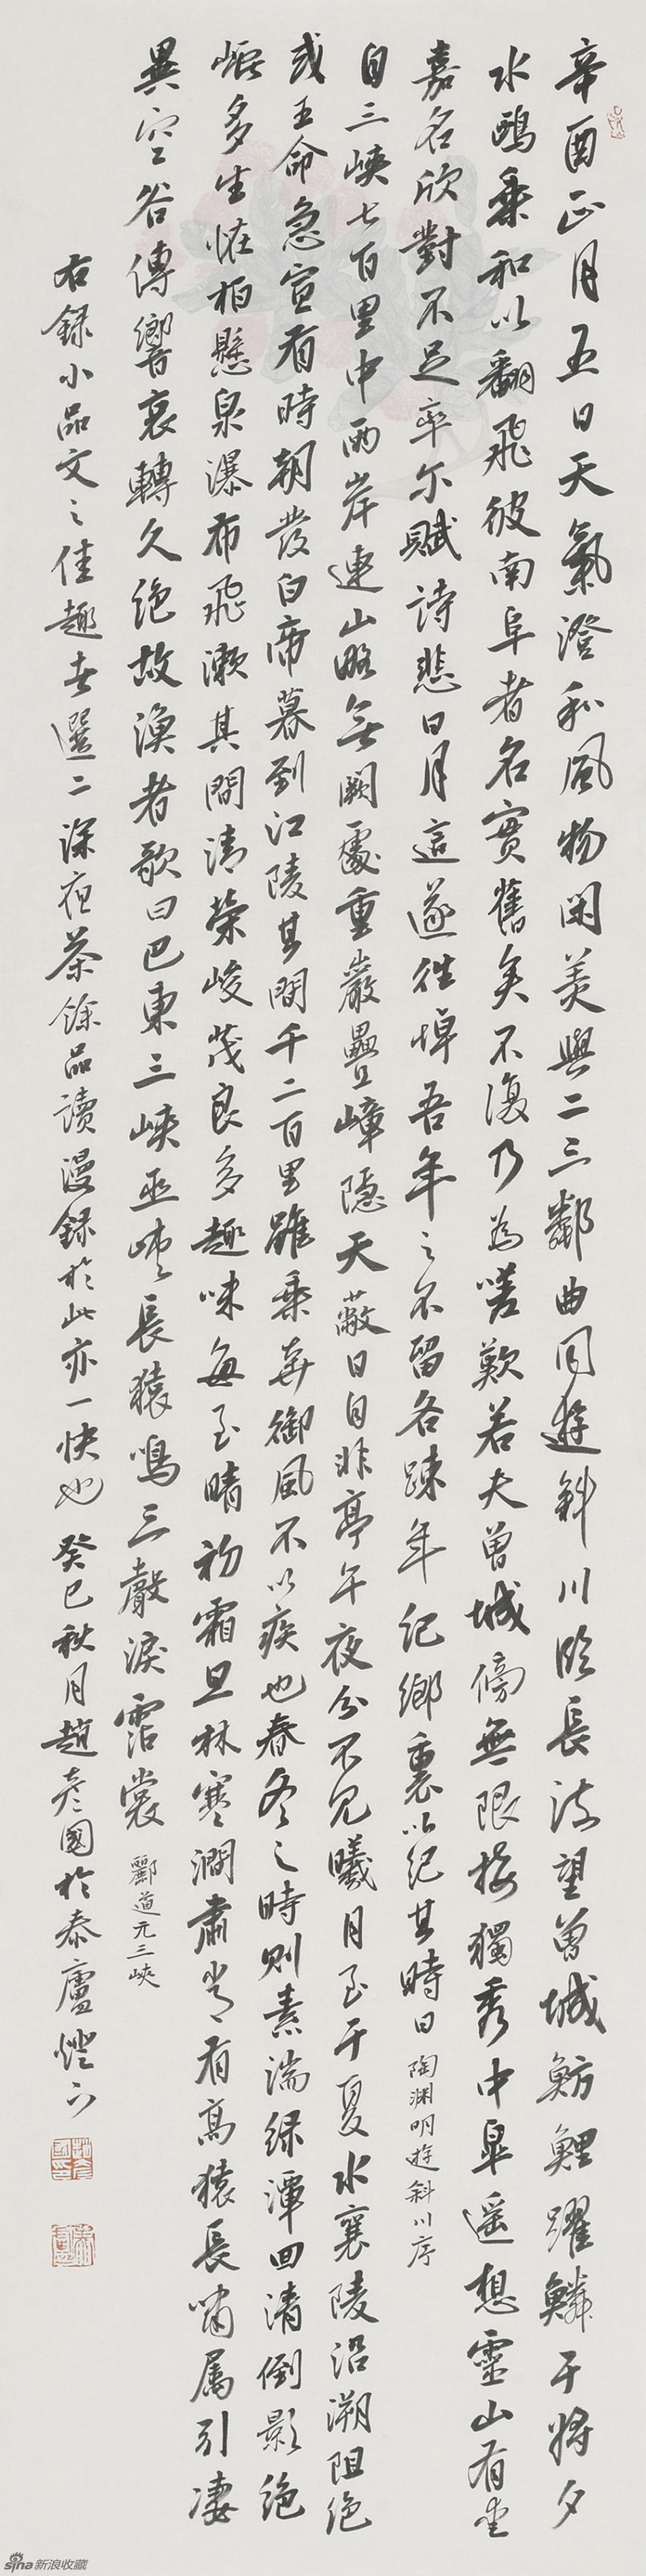 辛酉正月五日天氣澄和風物閑美與二三鄰曲同遊斜川臨長流望曾城魴鯉躍鱗于將夕
水鷗乘和以翻飛彼南阜者名實舊矣不復乃為嗟歎若夫曾城傍無限接獨秀中皐遥想靈山有愛
嘉名欣對不足率尔賦詩悲日月這遂往悼吾年之不留各疎年紀鄉裏以紀其時日 陶渊明遊斜川序
自三峽七百里中兩岸連山略無闕處重巖疊嶂隱天蔽日自非亭午夜分不見曦月至于夏水襄陵沿溯阻絶
或王命急宣有時朝發白帝暮到江陵其間千二百里雖乘奔御風不以疾也春冬之時則素湍緑潭回清倒影絶
巘多生怪柏懸泉瀑布飛漱其間清榮峻茂良多趣味每至晴初霜旦林寒澗肅常有高猿長嘯属引凄
異空谷傳響哀轉久絶故漁者歌曰巴東三峽巫峽長猿鳴三聲淚霑裳 酈道元三峽
右録小品文之佳趣者選二深夜茶餘品讀漫録於此亦一快也 癸巳秋月趙彦國於泰廬燈下
sina新浪收藏